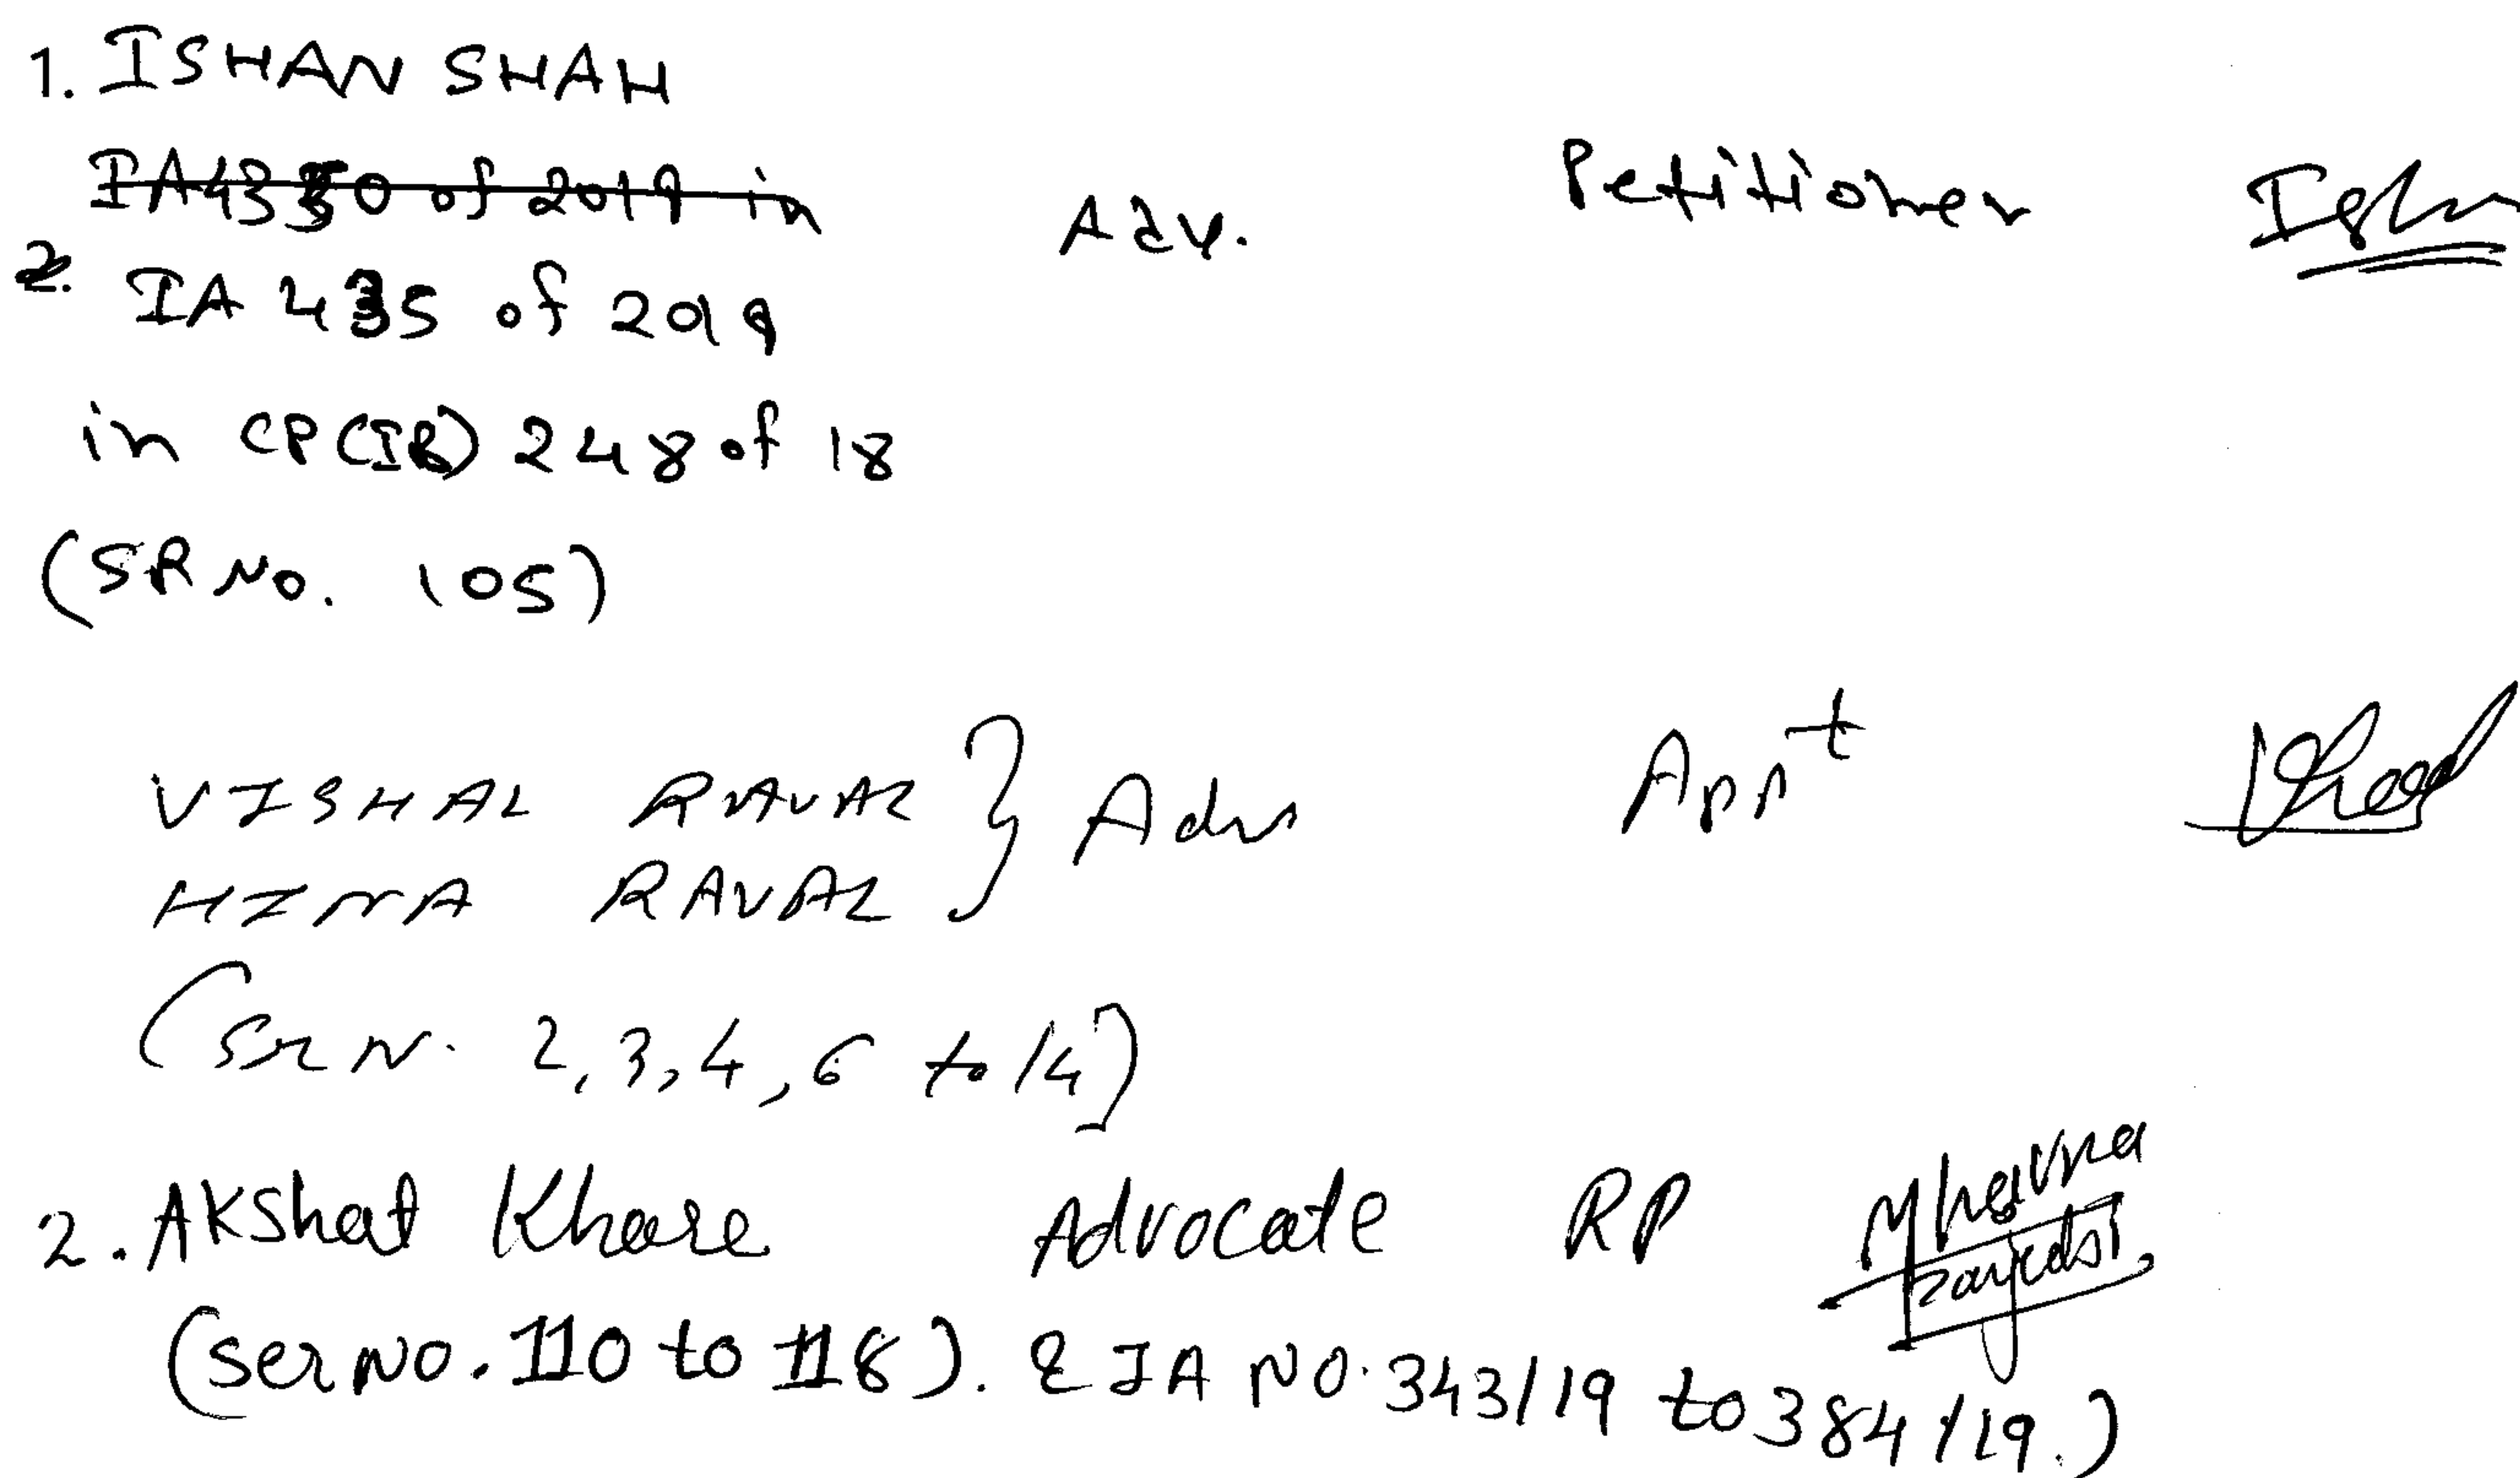 1. ISHAN SHAH
IA 4350 of 2019 in Adv. Petitioner
2. IA 435 of 2019
in CP(IB) 248 of 18
(SR No. 105)
VISHAL RAVAL } Adv Appt
HINA RAVAL
(Sr N. 2,3,4,6 to 14)
2. Akshat Khare Advocate RP
(Ser No. 110 to 118). & IA NO. 343/19 to 384/19.)